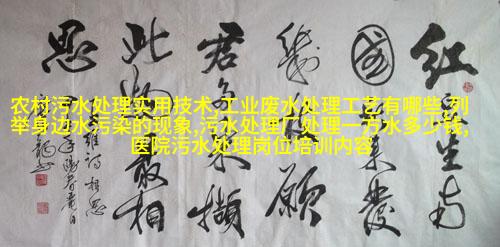 红豆生南
國春来發
幾枝願
君多采撷
此物最相
思
王維诗相思
农村污水处理实用技术,工业废水处理工艺有哪些,列
举身边水污染的现象,污水处理厂处理一方水多少钱,
医院污水处理岗位培训内容